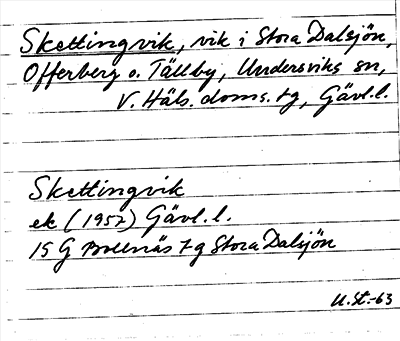 Skettingvik, vik i Stora Dalsjön,
Offerberg o. Tällby, Undersviks sn,
V. Häls. doms. tg, Gävl.l.
Skettingvik
ek (1957) Gävl.l.
15 G Bollnäs tg Stora Dalsjön
U.St.-63